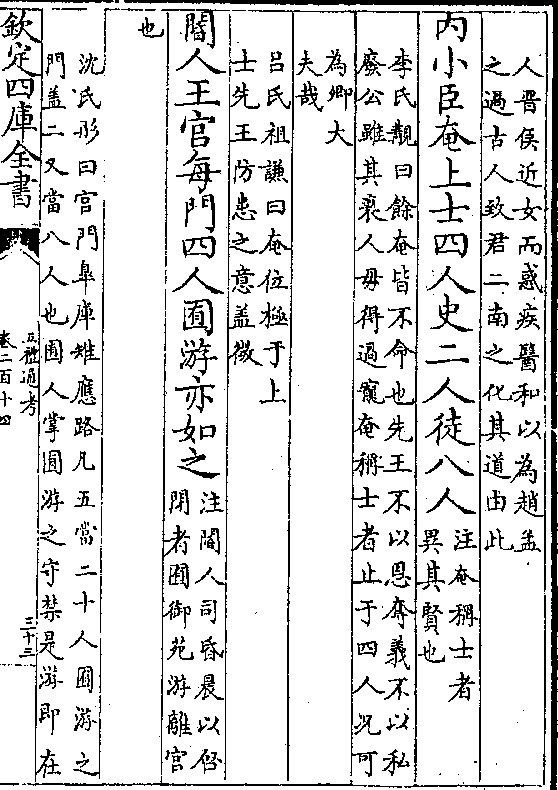 人晉侯近女而惑疾醫和以為趙孟
之過古人致君二南之化其道由此
内小臣奄上士四人史二人徒八人
注奄稱士者
異其賢也
李氏覯曰餘奄皆不命也先王不以恩奪義不以私
廢公雖其褻人毋得過寵奄稱士者止于四人况可
為卿大
夫哉
吕氏祖謙曰奄位極于上
士先王防患之意盖微
閽人王宫每門四人囿游亦如之
注閽人司昏晨以啓
閉者囿御苑游離宫
也
沈氏彤曰宫門臯庫雉應路凡五當二十人囿游之
門盖二又當八人也囿人掌囿游之守禁是游即在
欽定四庫全書
五禮通考
卷二百十四
三十三